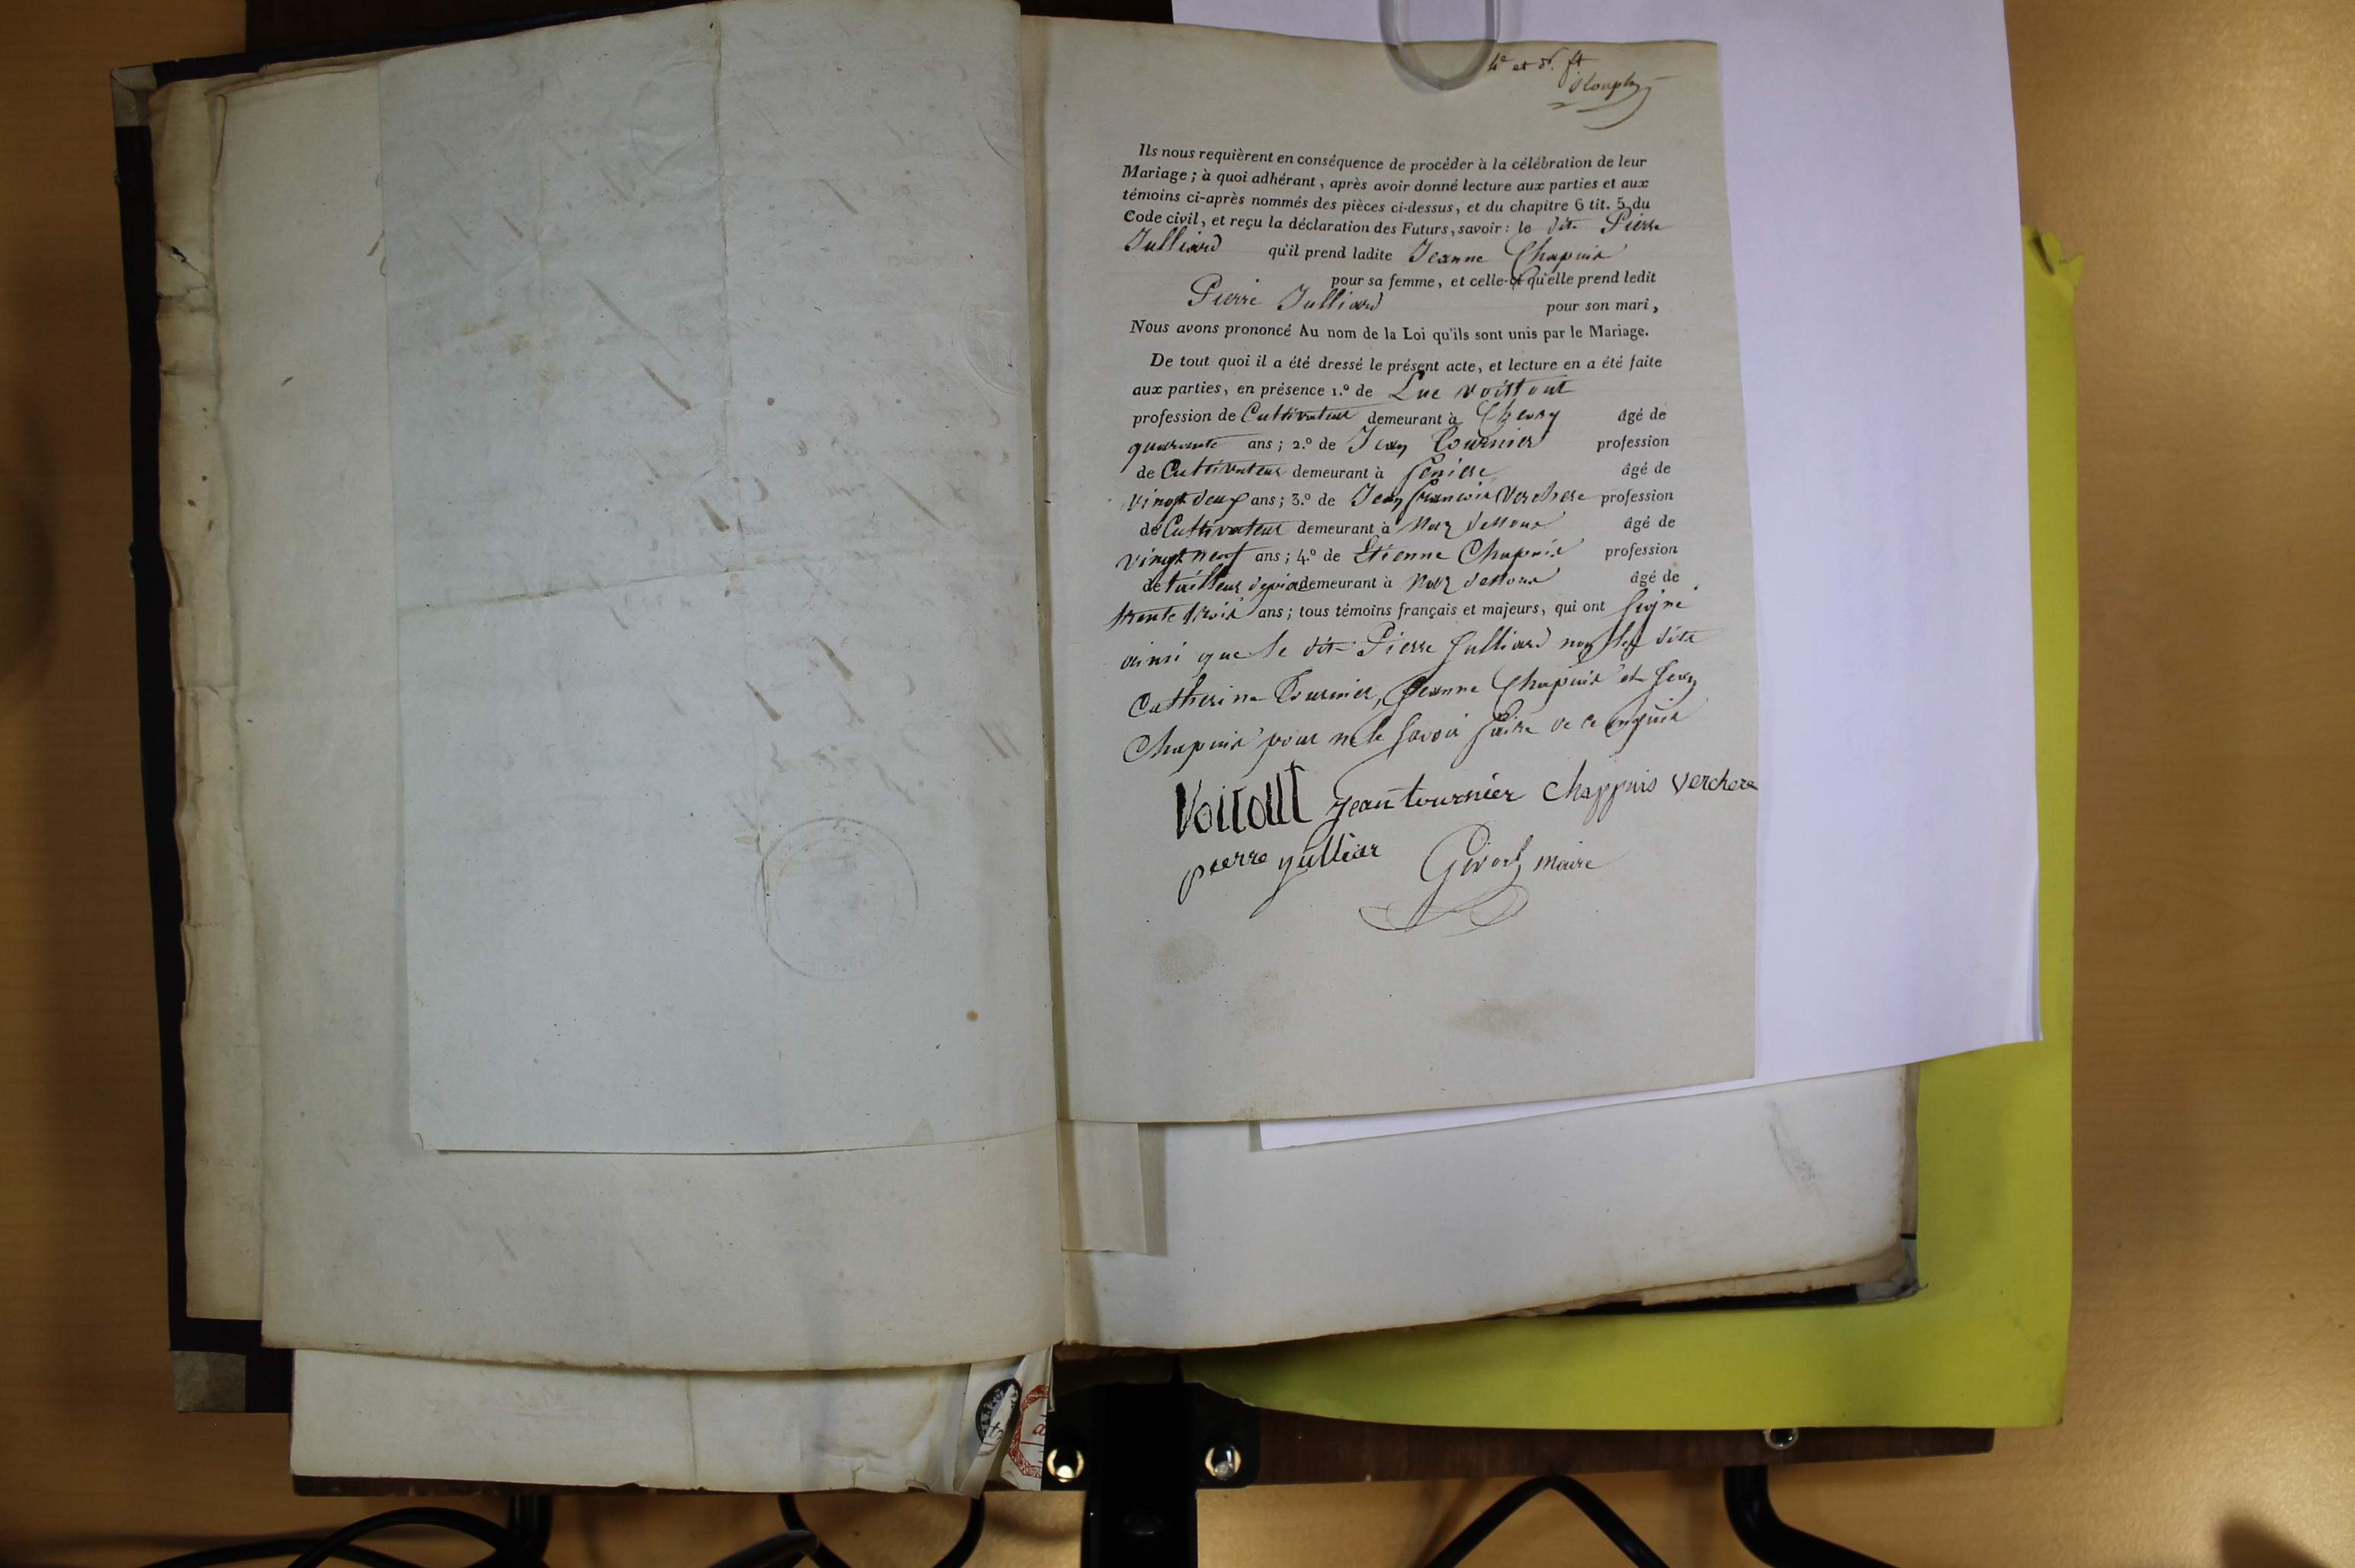 4e et
Ils nous requièrent en conséquence de procéder à la célébration de leur
Mariage ; à quoi adhérant, après avoir donné lecture aux parties et aux
témoins ci-après nommés des pièces ci-dessus, et du chapitre 6 tit. 5 du
Code civil, et reçu la déclaration des Futurs, savoir : le dit Pierre
Julliard qu'il prend ladite Jeanne Chapuis
pour sa femme, et celle-ci qu'elle prend ledit
Pierre Julliard pour son mari,
Nous avons prononcé Au nom de la Loi qu'ils sont unis par le Mariage.
De tout quoi il a été dressé le présent acte, et lecture en a été faite
aux parties, en présence 1.º de Luc Voittout
profession de Cultivateur demeurant à Chevry âgé de
quarante ans ; 2.º de Jean Tournier profession
de Cultivateur demeurant à âgé de
vingt deux ans ; 3.º de Jean francois Verchere profession
de Cultivateur demeurant à Naz dessous âgé de
vingt neuf ans ; 4.º de Etienne Chapuis profession
de tailleur demeurant à Naz dessous âgé de
trente trois ans ; tous témoins français et majeurs, qui ont signé
ainsi que le dit Pierre Julliard non les dits
Catherine Tournier, Jeanne Chapuis et Jean
Chapuis pour ne le savoir faire de ce enquis
Voitout jean tournier Chappuis Verchere
pierre julliar Girod maire